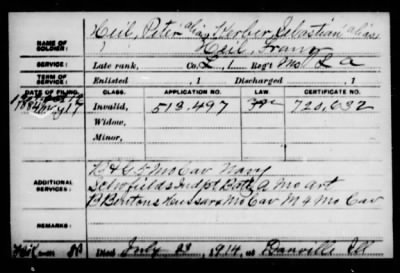 Heil, Peter alias Herber, Sebastian alias
NAME OF SOLDIER: Heil, Franz
SERVICE: Late rank, Co. L, 1 Reg't Mo L a
TERM OF SERVICE: Enlisted , 1 Discharged , 1
DATE OF FILING. CLASS. APPLICATION NO. LAW. CERTIFICATE NO.
1884 Invalid, 513.497 720,632
Widow,
Minor,
ADDITIONAL SERVICES: Mo Cav Navy
Schofields Indpt Batty a Mo art
B Bentons Hussars Mo Cav M 4 Mo Cav
REMARKS:
Died July 1914, at Danville Ill